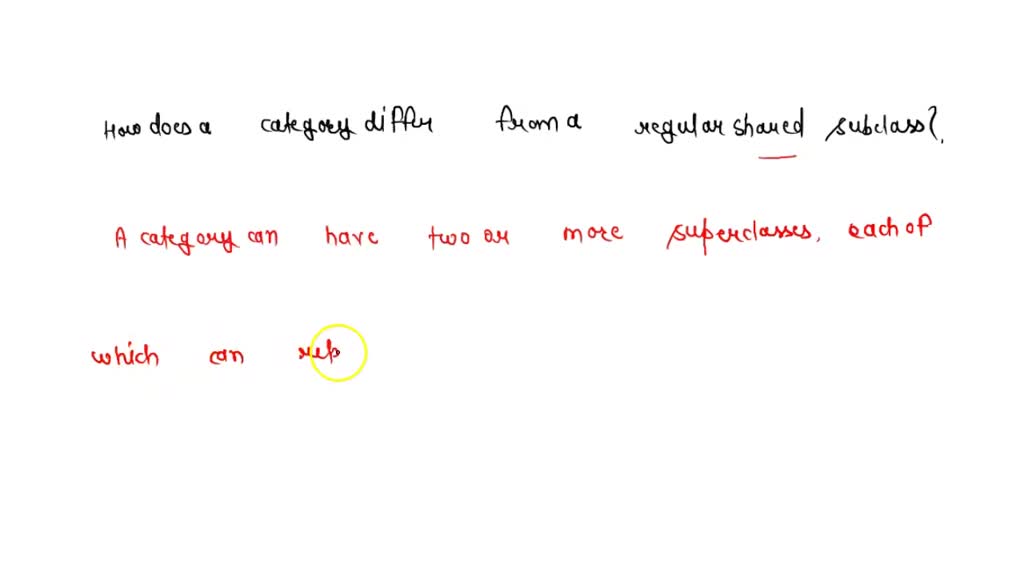 How does a category differ from a regular shared subclass?
A category can have two or more superclasses, each of
which can rep